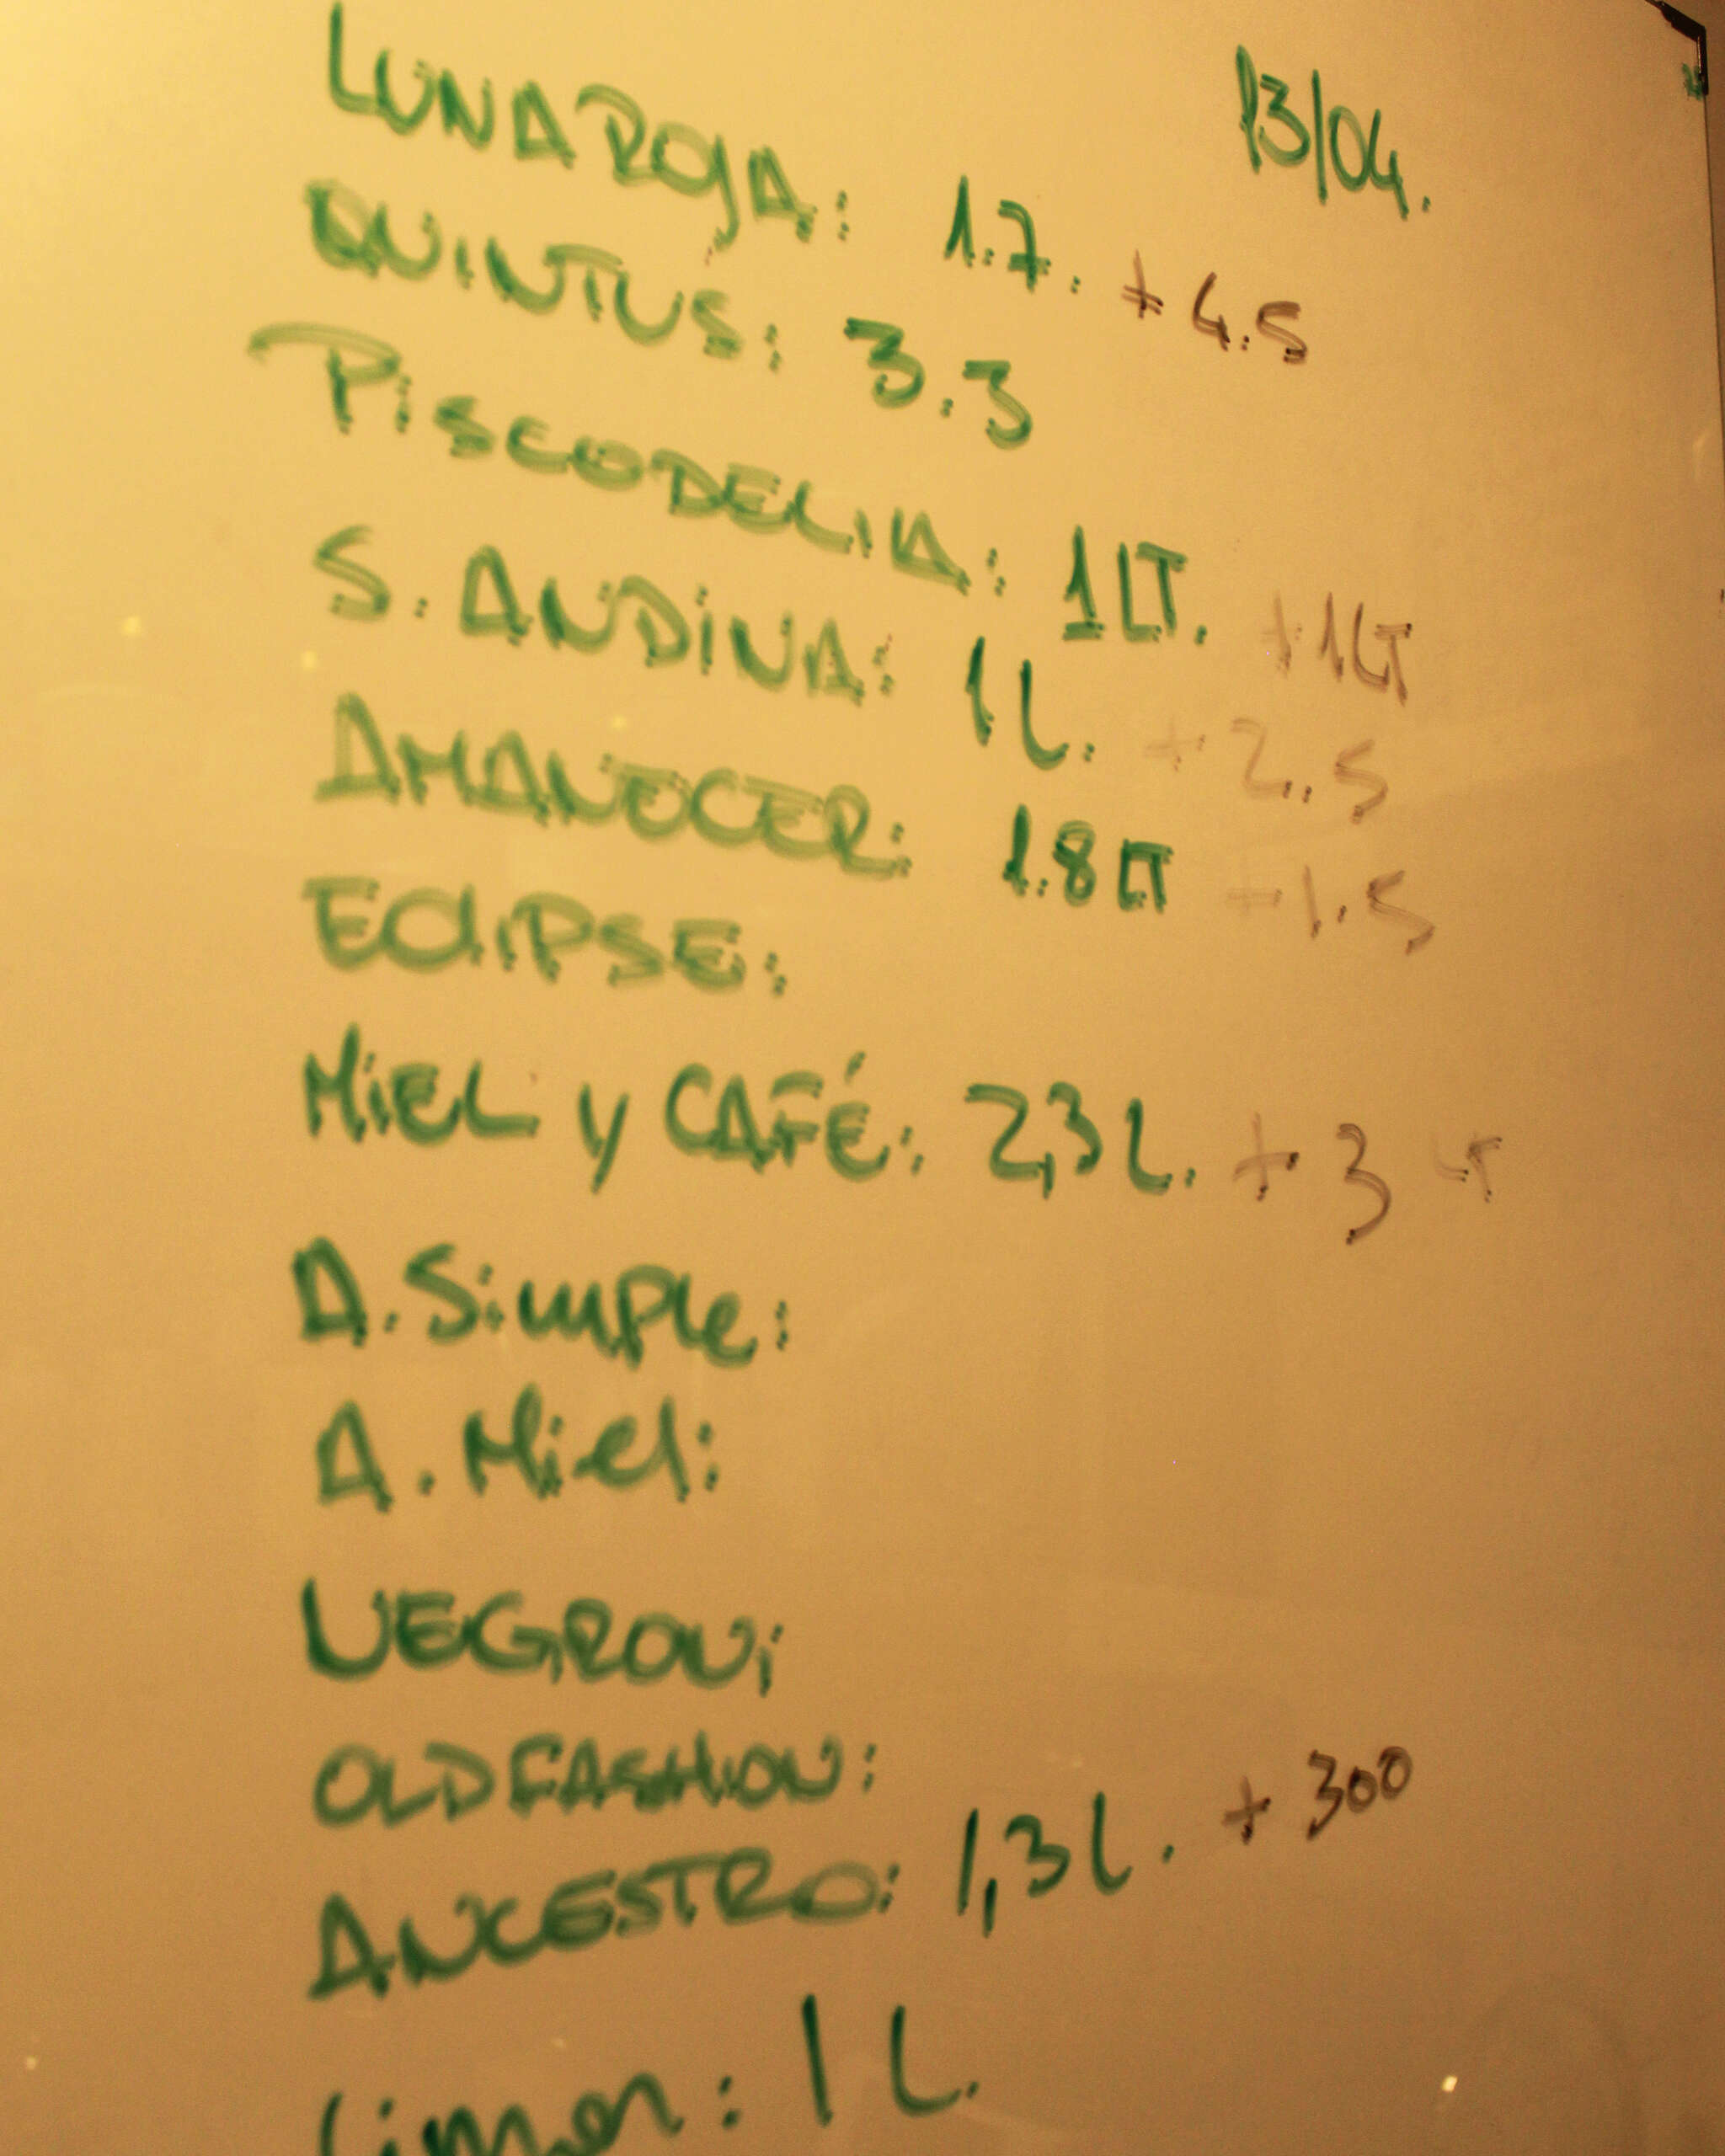 13/04.
LUNA ROJA: 1.7. + 4.5
QUINTUS: 3.3
PISCODELIA: 1LT. + 1LT
S. ANDINA: 1L. + 2.5
AMANECER: 1.8LT + 1.5
ECLIPSE:
MIEL Y CAFÉ: 2,3L. + 3 LT
A. Simple:
A. Miel:
NEGRONI
OLD FASHION:
ANCESTRO: 1,3L. + 300
Limon: 1L.